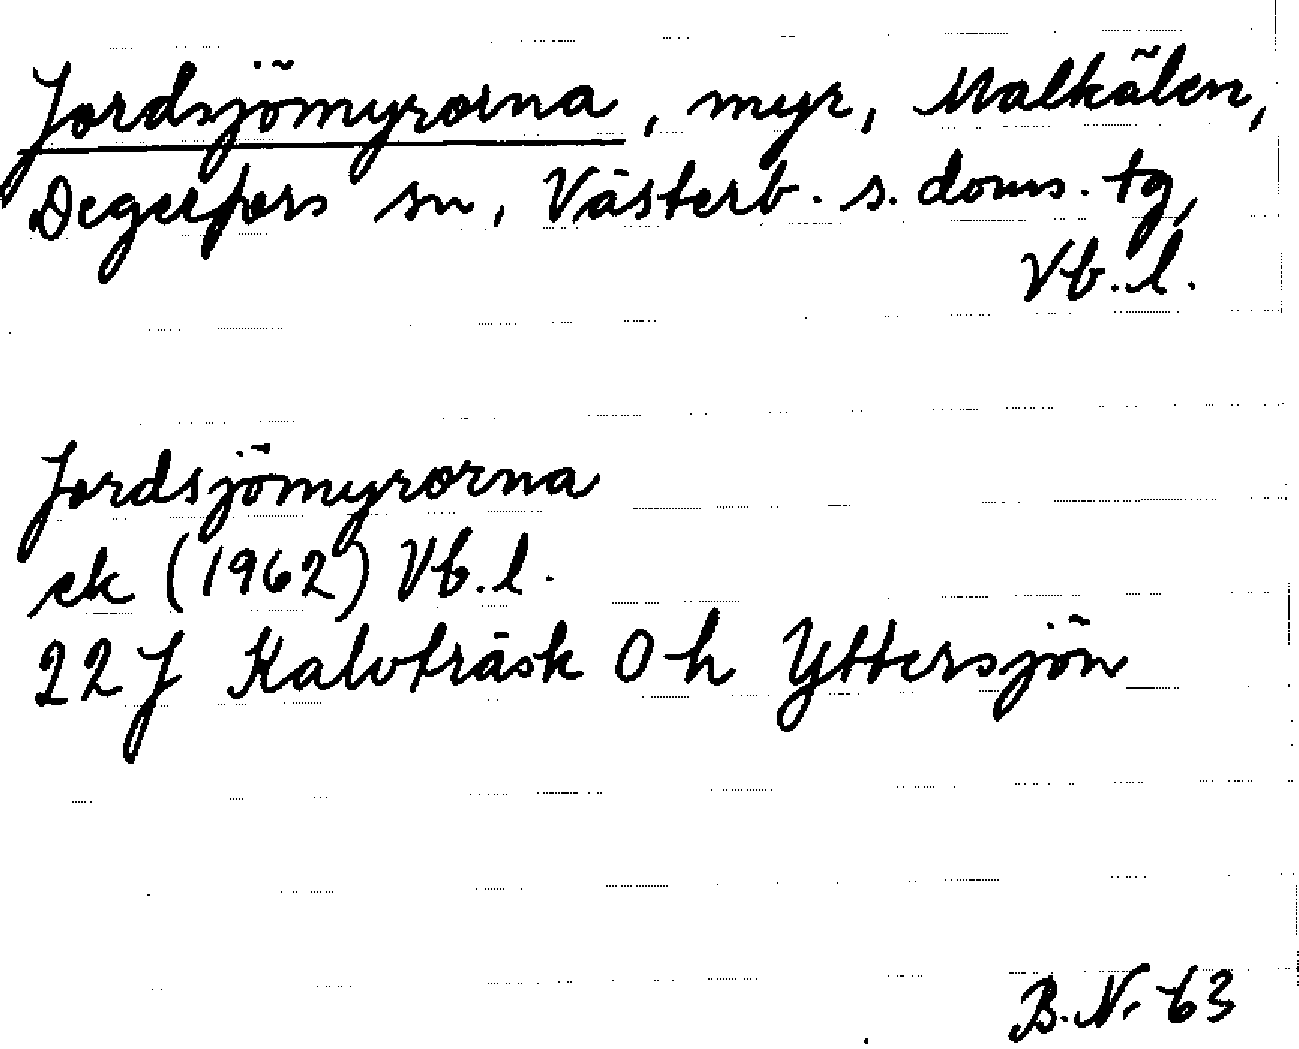 Jordsjömyrorna, myr, Malkälen,
Degerfors sn, Västerb. s. doms. tg,
Vb. l.
Jordsjömyrorna
ek (1962) Vb. l.
22 J Kalvträsk O h Yttersjön
B. N. 63